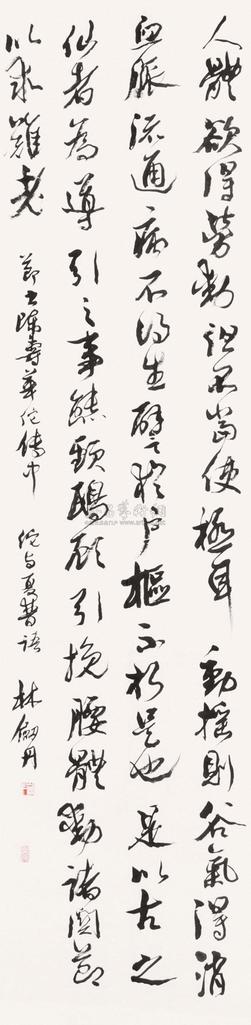 人體欲得勞動但不當使極耳動搖則谷氣得消
血脈流通病不得生譬猶户樞不朽是也是以古之
仙者為導引之事熊頸鴟顧引挽腰體動諸關節
以求難老
節士陳壽華佗傳中佗与吳普語林劍丹